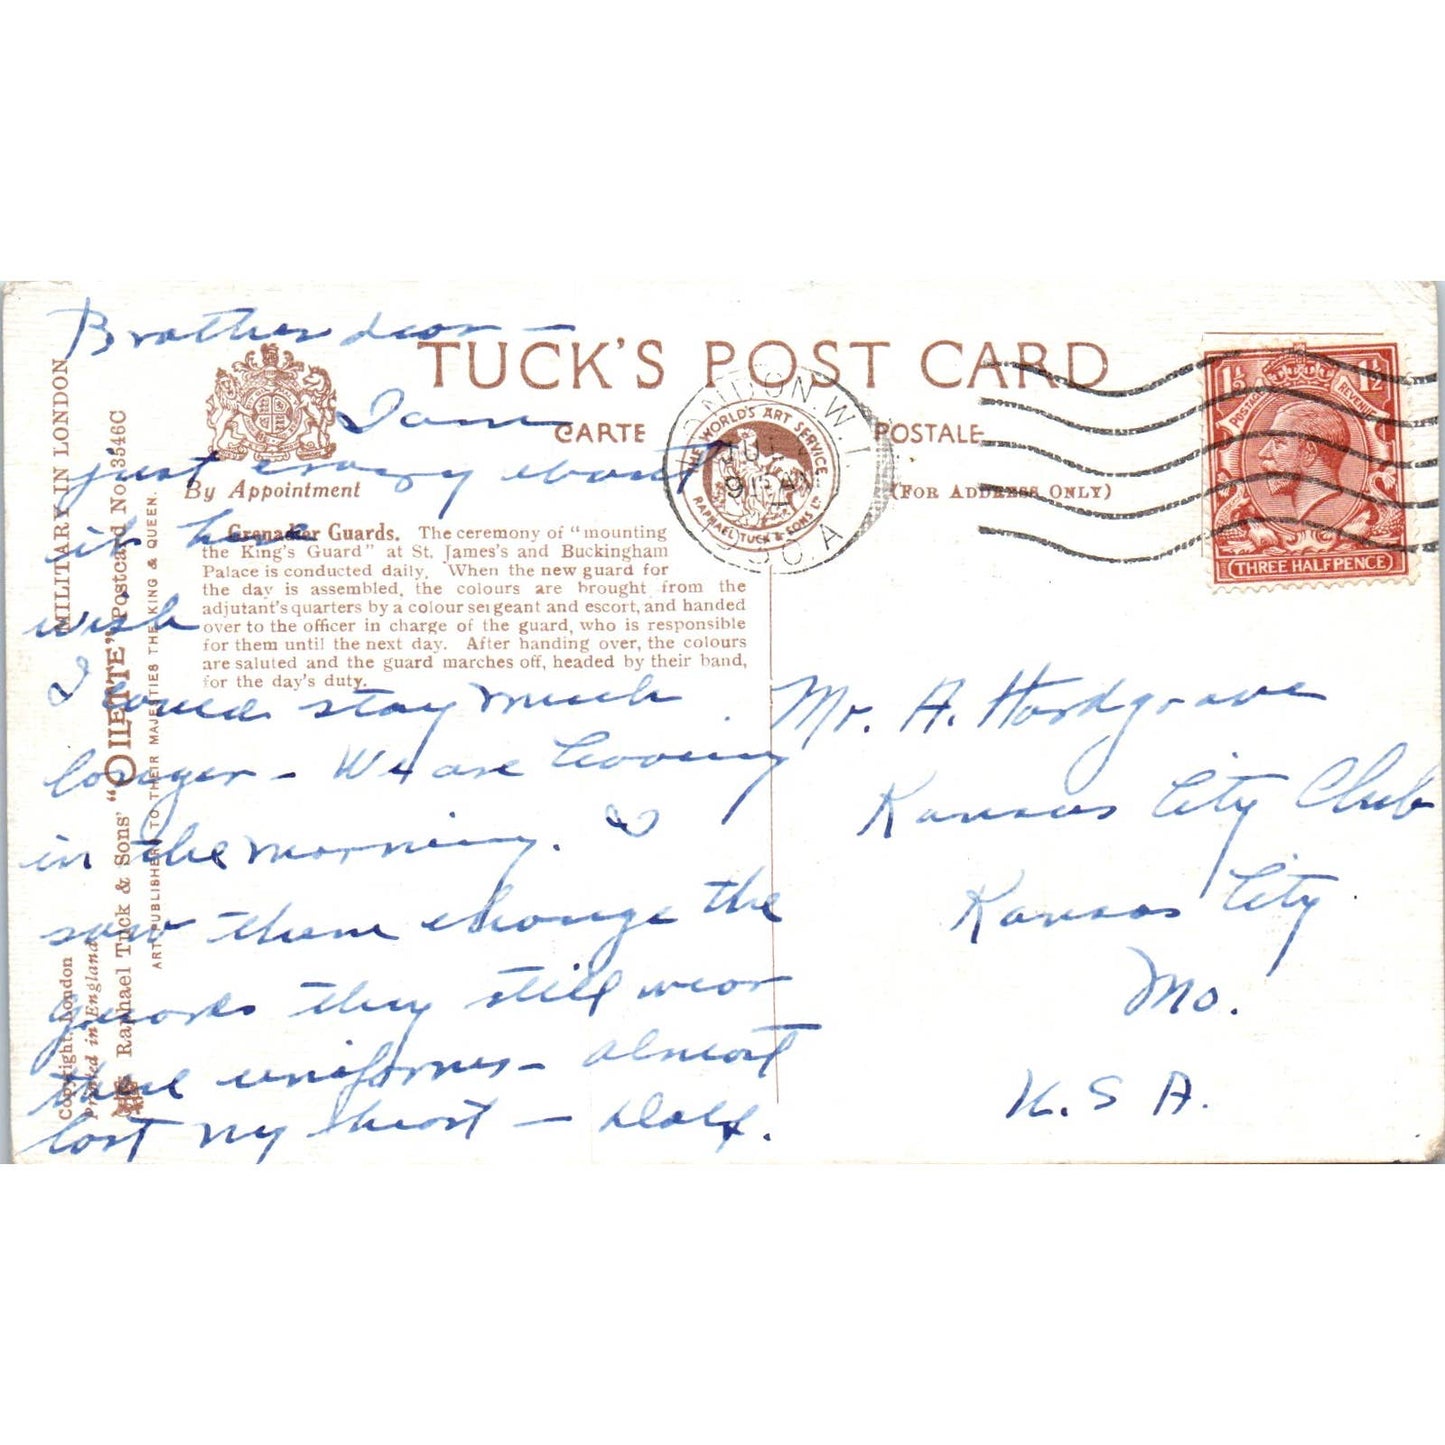 TUCK'S POST CARD
CARTE POSTALE
By Appointment
(FOR ADDRESS ONLY)
Grenadier Guards. The ceremony of "mounting
the King's Guard" at St. James's and Buckingham
Palace is conducted daily. When the new guard for
the day is assembled, the colours are brought from the
adjutant's quarters by a colour sergeant and escort, and handed
over to the officer in charge of the guard, who is responsible
for them until the next day. After handing over, the colours
are saluted and the guard marches off, headed by their band,
for the day's duty.
MILITARY IN LONDON
Raphael Tuck & Sons' "OILETTE" Postcard No. 3546C
ART PUBLISHERS TO THEIR MAJESTIES THE KING & QUEEN.
Copyright. London
Printed in England
THE WORLD'S ART SERVICE
RAPHAEL TUCK & SONS LTD
LONDON. W. 1.
9 15 AM
POSTAGE REVENUE
1½ 1½
THREE HALFPENCE
Brother dear —
I am
just crazy about
it here
wish
I could stay much
longer — We are leaving
in the morning. I
saw them change the
guards they still wear
these uniforms — almost
lost my heart —
Mr. A. Hardgrave
Kansas City Club
Kansas City
Mo.
U.S.A.